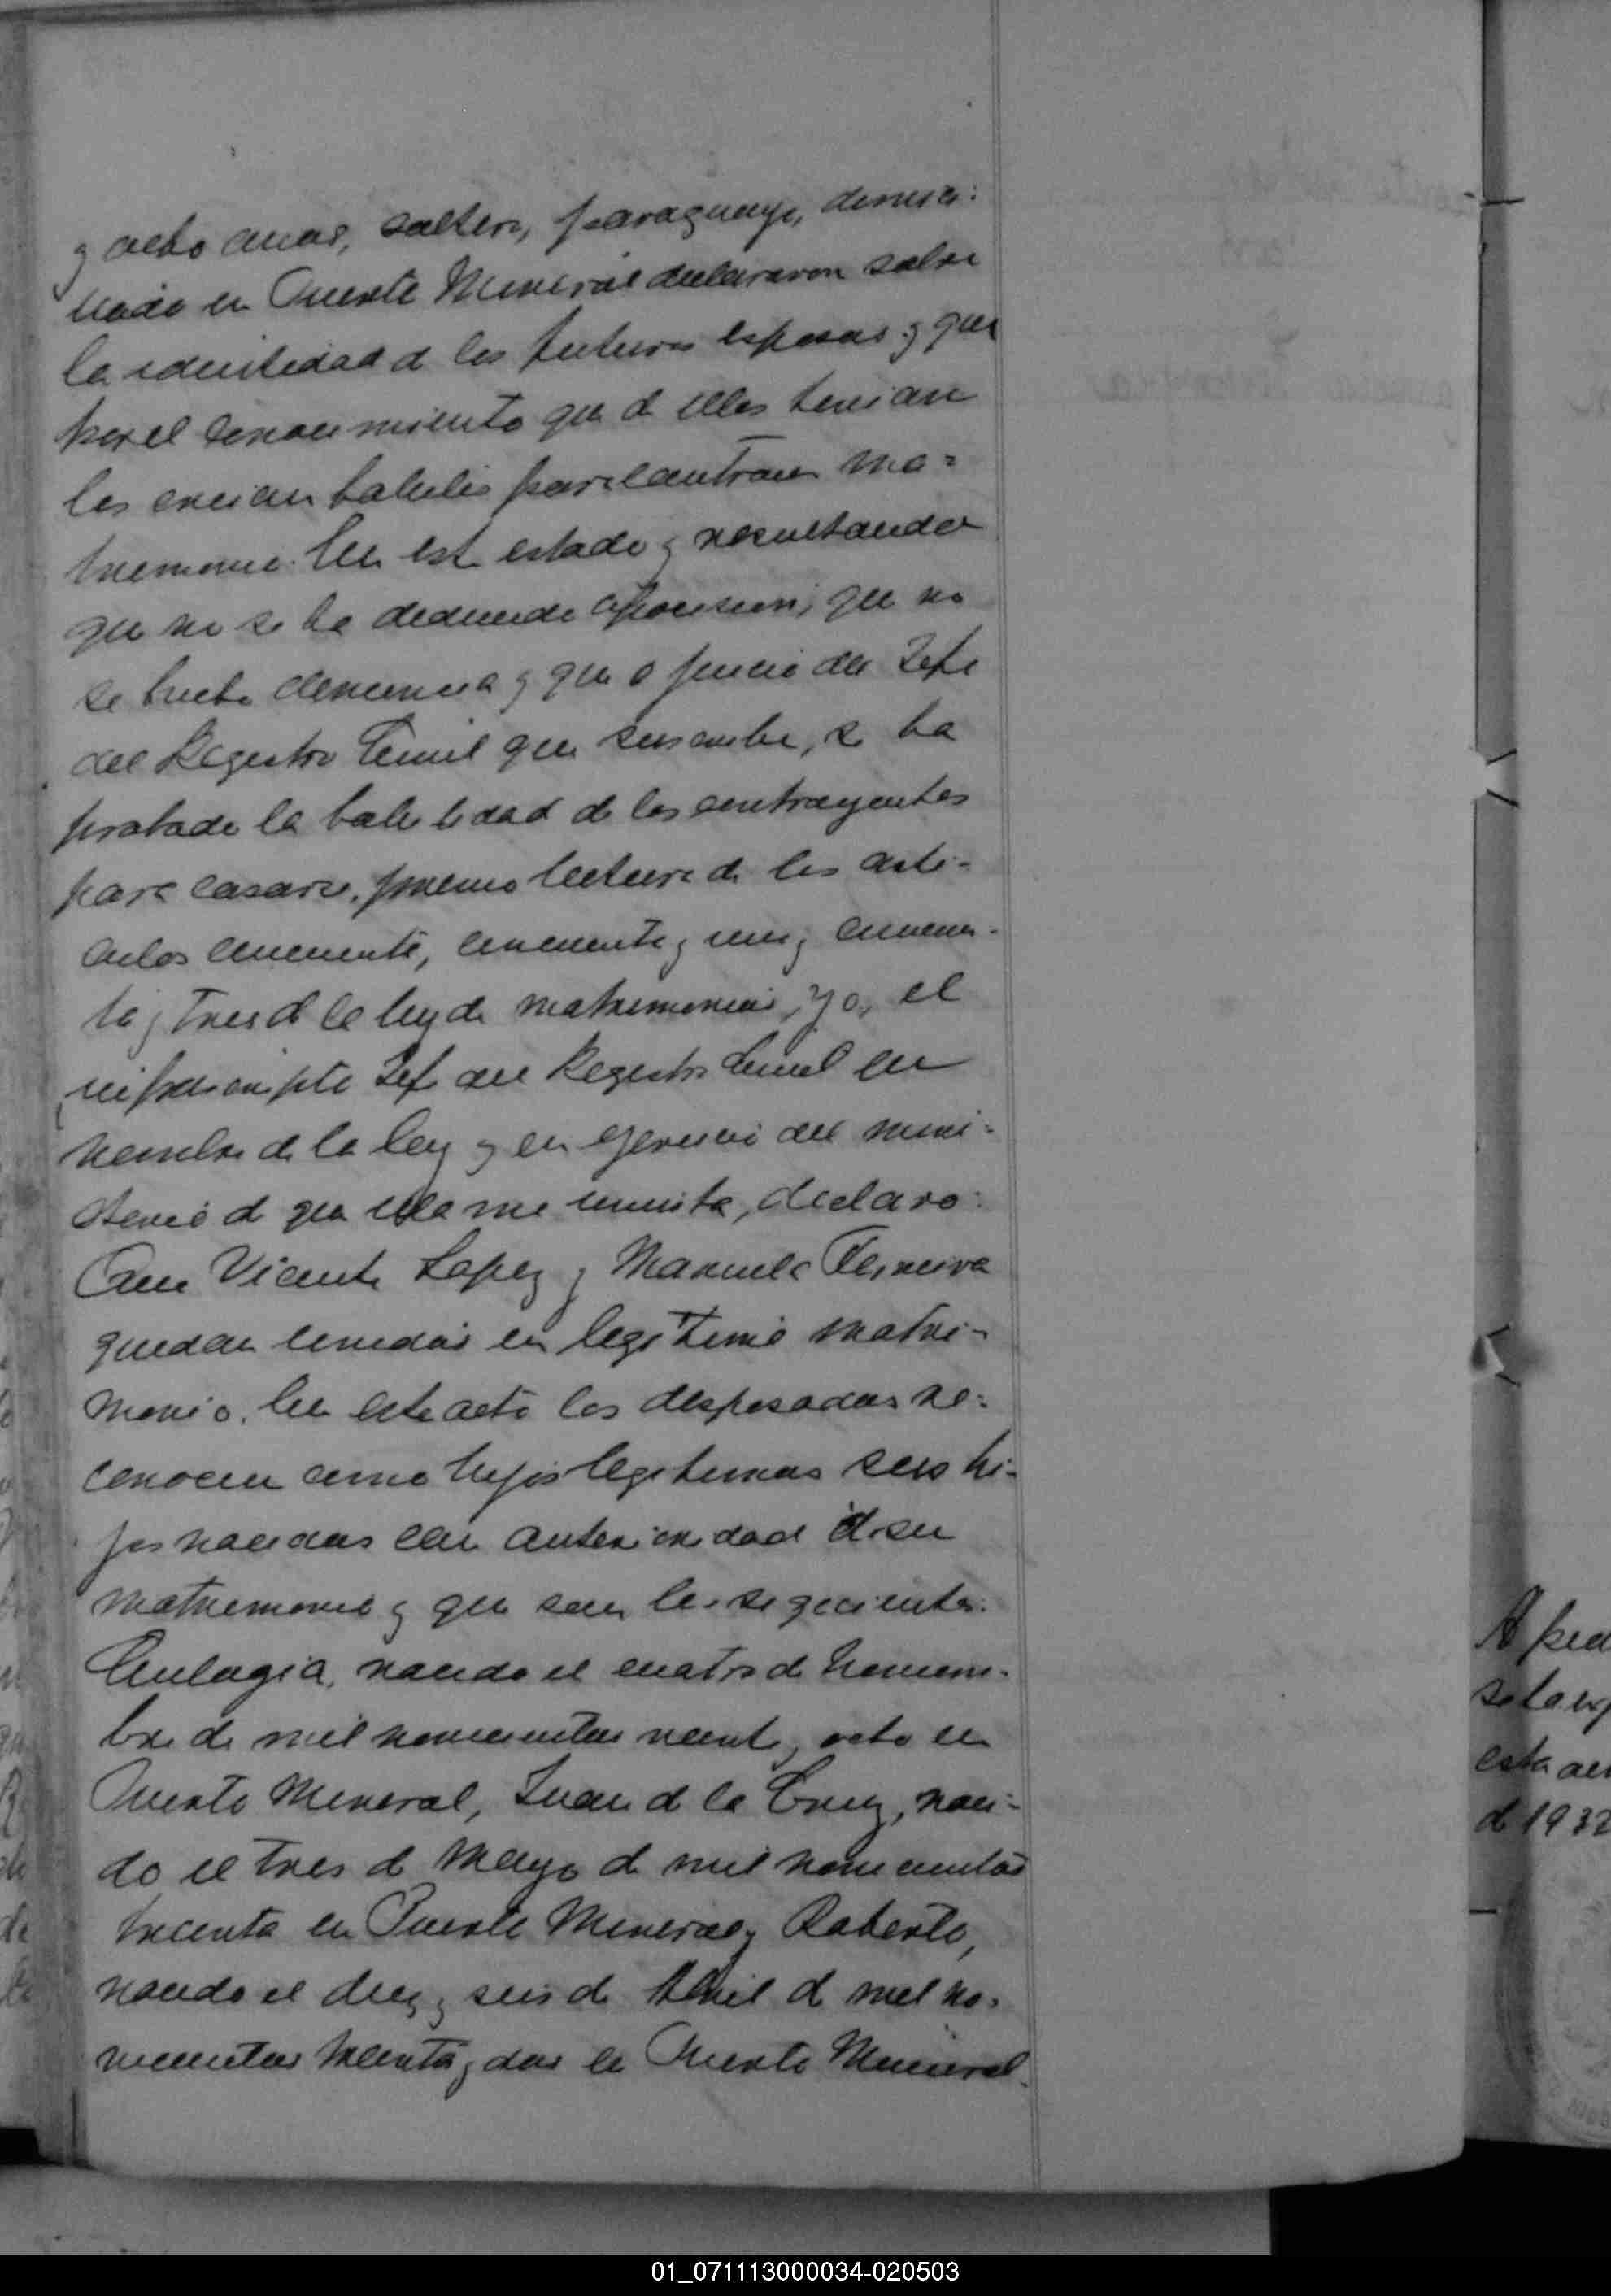 y ocho años, soltero, paraguayo, domici-
liado en Puerto Mineral declararon sobre
la identidad de los futuros esposos y que
por el conocimiento que de ellos tenian
los creian habiles para contraer ma-
trimonio. En este estado y resultando
que no se ha deducido oposicion, que no
se hecho denuncia y que a juicio del Jefe
del Registro Civil que suscribe, se ha
probado la habilidad de los contrayentes
para casarse, previa lectura de los arti-
culos cincuenta, cincuenta y uno y cincuen-
ta y tres de la ley de matrimonio, yo, el
infrascripto Jefe del Registro Civil en
nombre de la ley y en ejercicio del mini-
sterio de que ella me invista, declaro:
Que Vicente Lopez y Manuela Ferreira
quedan unidos en legitimo matri-
monio. En este acto los desposados re-
conocen como hijos legitimos sus hi-
jos nacidos con anterioridad de su
matrimonio y que son los siguientes:
Eulogia, nacida el cuatro de Noviem-
bre de mil novecientos veinte y ocho en
Puerto Mineral, Juan de la Cruz, naci-
do el tres de Mayo de mil novecientos
treinta en Puerto Mineral y Roberto,
nacido el diez y seis de Abril de mil no-
vecientos treinta y dos en Puerto Mineral.
A ped
esta
de 193
01_071113000034-020503